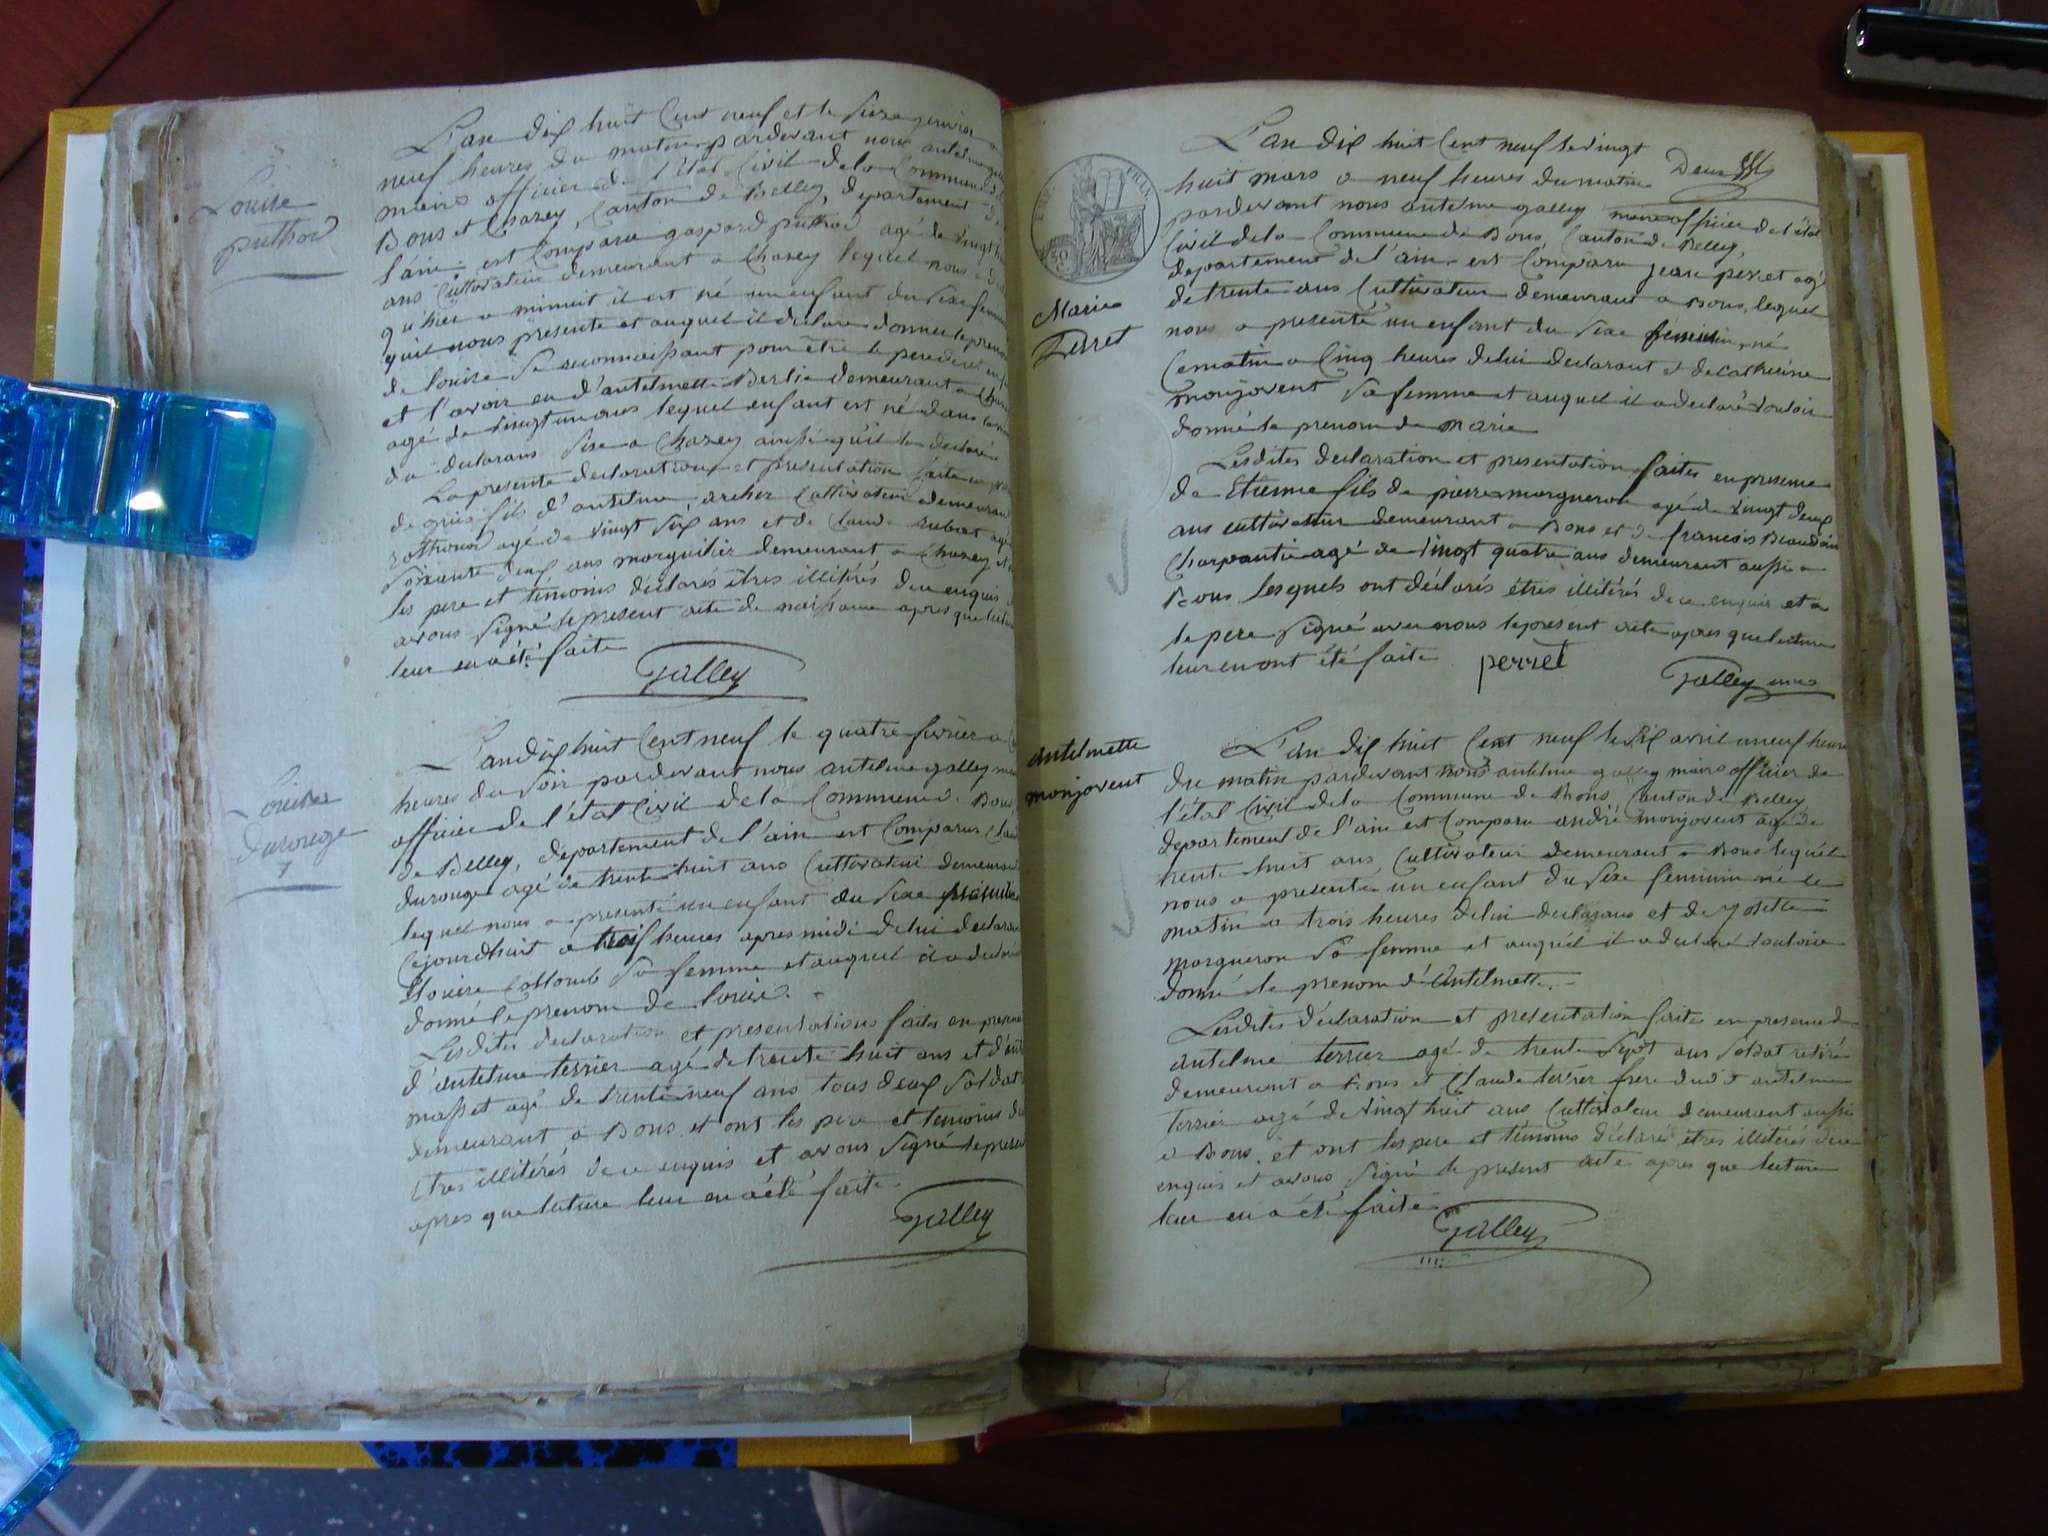 Louise
puthod
L'an dix huit Cent neuf et le Seize janvier a
neuf heures du matin pardevant nous antelme
maire officier de l'état Civil de la Commune de
Bons et Chazey, Canton de Belley, departement de
l'ain est Comparu gaspard puthod agé de vingt
ans Cultivateur demeurant a Chazey lequel nous a
qu'hier a minuit il est né un enfant du Sexe
qu'il nous presente et auquel il declare donner le
de louise Se reconnaissant pour être le pere
et l'avoir eu d'antelmette Berlie demeurant a
agé de vingt un ans lequel enfant est né dans la
du declarant Sise a Chazey ainsi qu'il le declare
La presente declaration et presentation faite en
de fils d'antelme archer Cultivateur demeurant
agé de vingt Six ans et de Claude agé
Soixante deux ans marguilier demeurant a Chazey et
les pere et témoins déclarés êtres illitérés de ce enquis
avons Signé le present acte de naissance apres que lecture
leur en a été faite
Galley
Louise
durouge
L'an dix huit Cent neuf le quatre fevrier a
heures du Soir pardevant nous antelme galley
officier de l'état Civil de la Commune de Bons
de Belley, departement de l'ain est Comparus
durouge agé de trente huit ans Cultivateur demeurant
lequel nous a presenté un enfant du Sexe
Cejourdhuit a trois heures apres midi de lui declarant
Louise Collomb Sa femme et auquel il a declaré
donné le prenom de louise.
Lesdites declaration et presentations faites en presence
d'antelme terrier agé de trente huit ans et
masset agé de trente neuf ans tous deux Soldat
demeurant a Bons et ont les pere et temoins
êtres illitérés de ce enquis et avons Signé le present
apres que lecture leur en a été faite.
Galley
Deux
L'an dix huit Cent neuf le vingt
huit mars a neuf heures du matin
pardevant nous antelme galley maire officier de l'état
Civil de la Commune de Bons, Canton de Belley,
departement de l'ain est Comparu jean perret agé
de trente ans Cultivateur demeurant a Bons, lequel
nous a presenté un enfant du Sexe féminin, né
Ce matin a Cinq heures de lui declarant et de Catherine
monjovent Sa femme et auquel il a declaré vouloir
donné le prenom de marie
Marie
Perret
Lesdites declaration et presentation faites en presence
de Etienne fils de pierre margueron agé de vingt deux
ans cultivateur demeurant a Bons et de francois Beaudoin
Charpantie agé de vingt quatre ans demeurant aussi a
Bons lesquels ont déclarés êtres illitérés de ce enquis et a
le pere Signé avec nous le present acte apres que lecture
leur en ont été faite perret
Galley maire
antelmette
monjovent
L'an dix huit Cent neuf le Six avril a neuf heures
du matin pardevant nous antelme galley maire officier de
l'état Civil de la Commune de Bons, Canton de Belley
departement de l'ain est Comparu andré monjovent agé de
trente huit ans Cultivateur demeurant a Bons lequel
nous a presenté un enfant du Sexe feminin né ce
matin a trois heures de lui declarant et de Josette
margueron Sa femme et auquel il a declaré vouloir
donné le prenom d'Antelmette.
Lesdites déclaration et presentation faites en presence d
antelme terrier agé de trente Sept ans Soldat retiré
demeurant a Bons et Claude terrier frere dudit antelme
terrier agé de vingt huit ans Cultivateur demeurant aussi
a Bons, et ont les pere et témoins déclaré êtres illitérés de ce
enquis et avons Signé le present acte apres que lecture
leur en a été faite
Galley